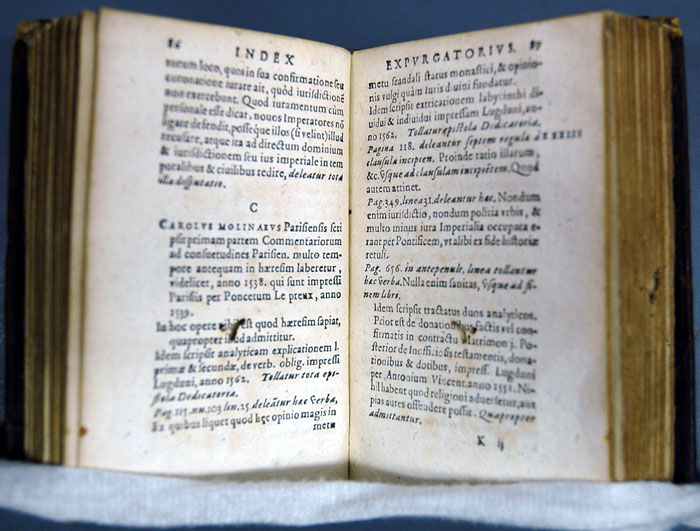 86 INDEX
rum loco, quos in sua confirmatione seu
coronatione iurare ait, quòd iurisdictionē
non exercebunt. Quod iuramentum cùm
personale esse dicat, nouos Imperatores nō
ligare defendit, posseque illos (si velint) illud
recusare, atque ita ad directum dominium
& iurisdictionem seu ius imperiale in tem
poralibus & ciuilibus redire, deleatur tota
illa disputatio.
C
CAROLVS MOLINAEVS Parisiensis scri
psit primam partem Commentariorum
ad consuetudines Parisien. multo tem-
pore antequam in hæresim laberetur,
videlicet, anno 1538. qui sunt impressi
Parisiis per Poncetum Le preux, anno
1539.
In hoc opere est quod hæresim sapiat,
quapropter admittitur.
Idem scripsit analyticam explicationem l.
primæ & secundæ, de verb. oblig. impressi
Lugduni, anno 1562. Tollatur tota epi-
stola Dedicatoria.
Pag. 115. nu. 103 lin. 25. deleātur hæc verba,
Ex quibus liquet quod hęc opinio magis in
metu
EXPVRGATORIVS. 87
metu scandali status monastici, & opinio-
nis vulgi quàm iuris diuini fundatur.
Idem scripsit extricationem labyrinthi di-
uidui & indiuidui impressam Lugduni, an-
no 1562. Tollatur epistola Dedicatoria.
Pagina 118. deleantur septem regulæ à
clausula incipien. Proinde ratio illarum,
&c. vsque ad clausulam incipiētem. Quod
autem attinet.
Pag. 349. linea 31. deleantur hæc. Nondum
enim iurisdictio, nondum politia vrbis, &
multo minus iura Imperialia occupata e-
rant per Pontificem, vt alibi ex fide historiæ
retuli.
Pag. 656. in antepenult. linea tollantur
hæc verba. Nulla enim sanitas, vsque ad fi-
nem libri.
Idem scripsit tractatus duos analyticos,
Prior est de donationibus factis vel con-
firmatis in contractu Matrimonij. Po-
sterior de Inoffi. testamentis, dona-
tionibus & dotibus, impress. Lugduni
per Antonium Vincent. anno 1552. Ni-
hil habent quod religioni aduersetur, aut
pias aures offendere possit. Quapropter
admittantur.
K ij